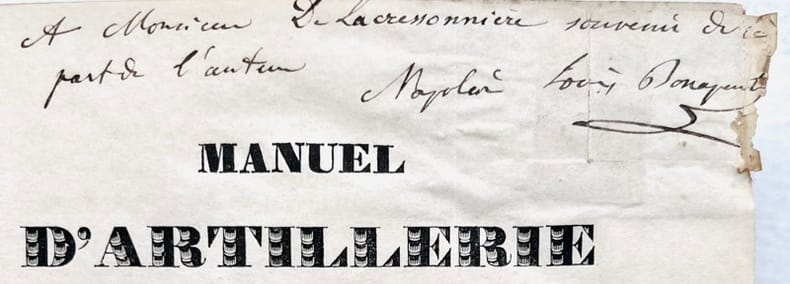 A Monsieur De Lacressonnière souvenir de la
part de l'auteur
Napoléon Louis Bonaparte
MANUEL
D'ARTILLERIE